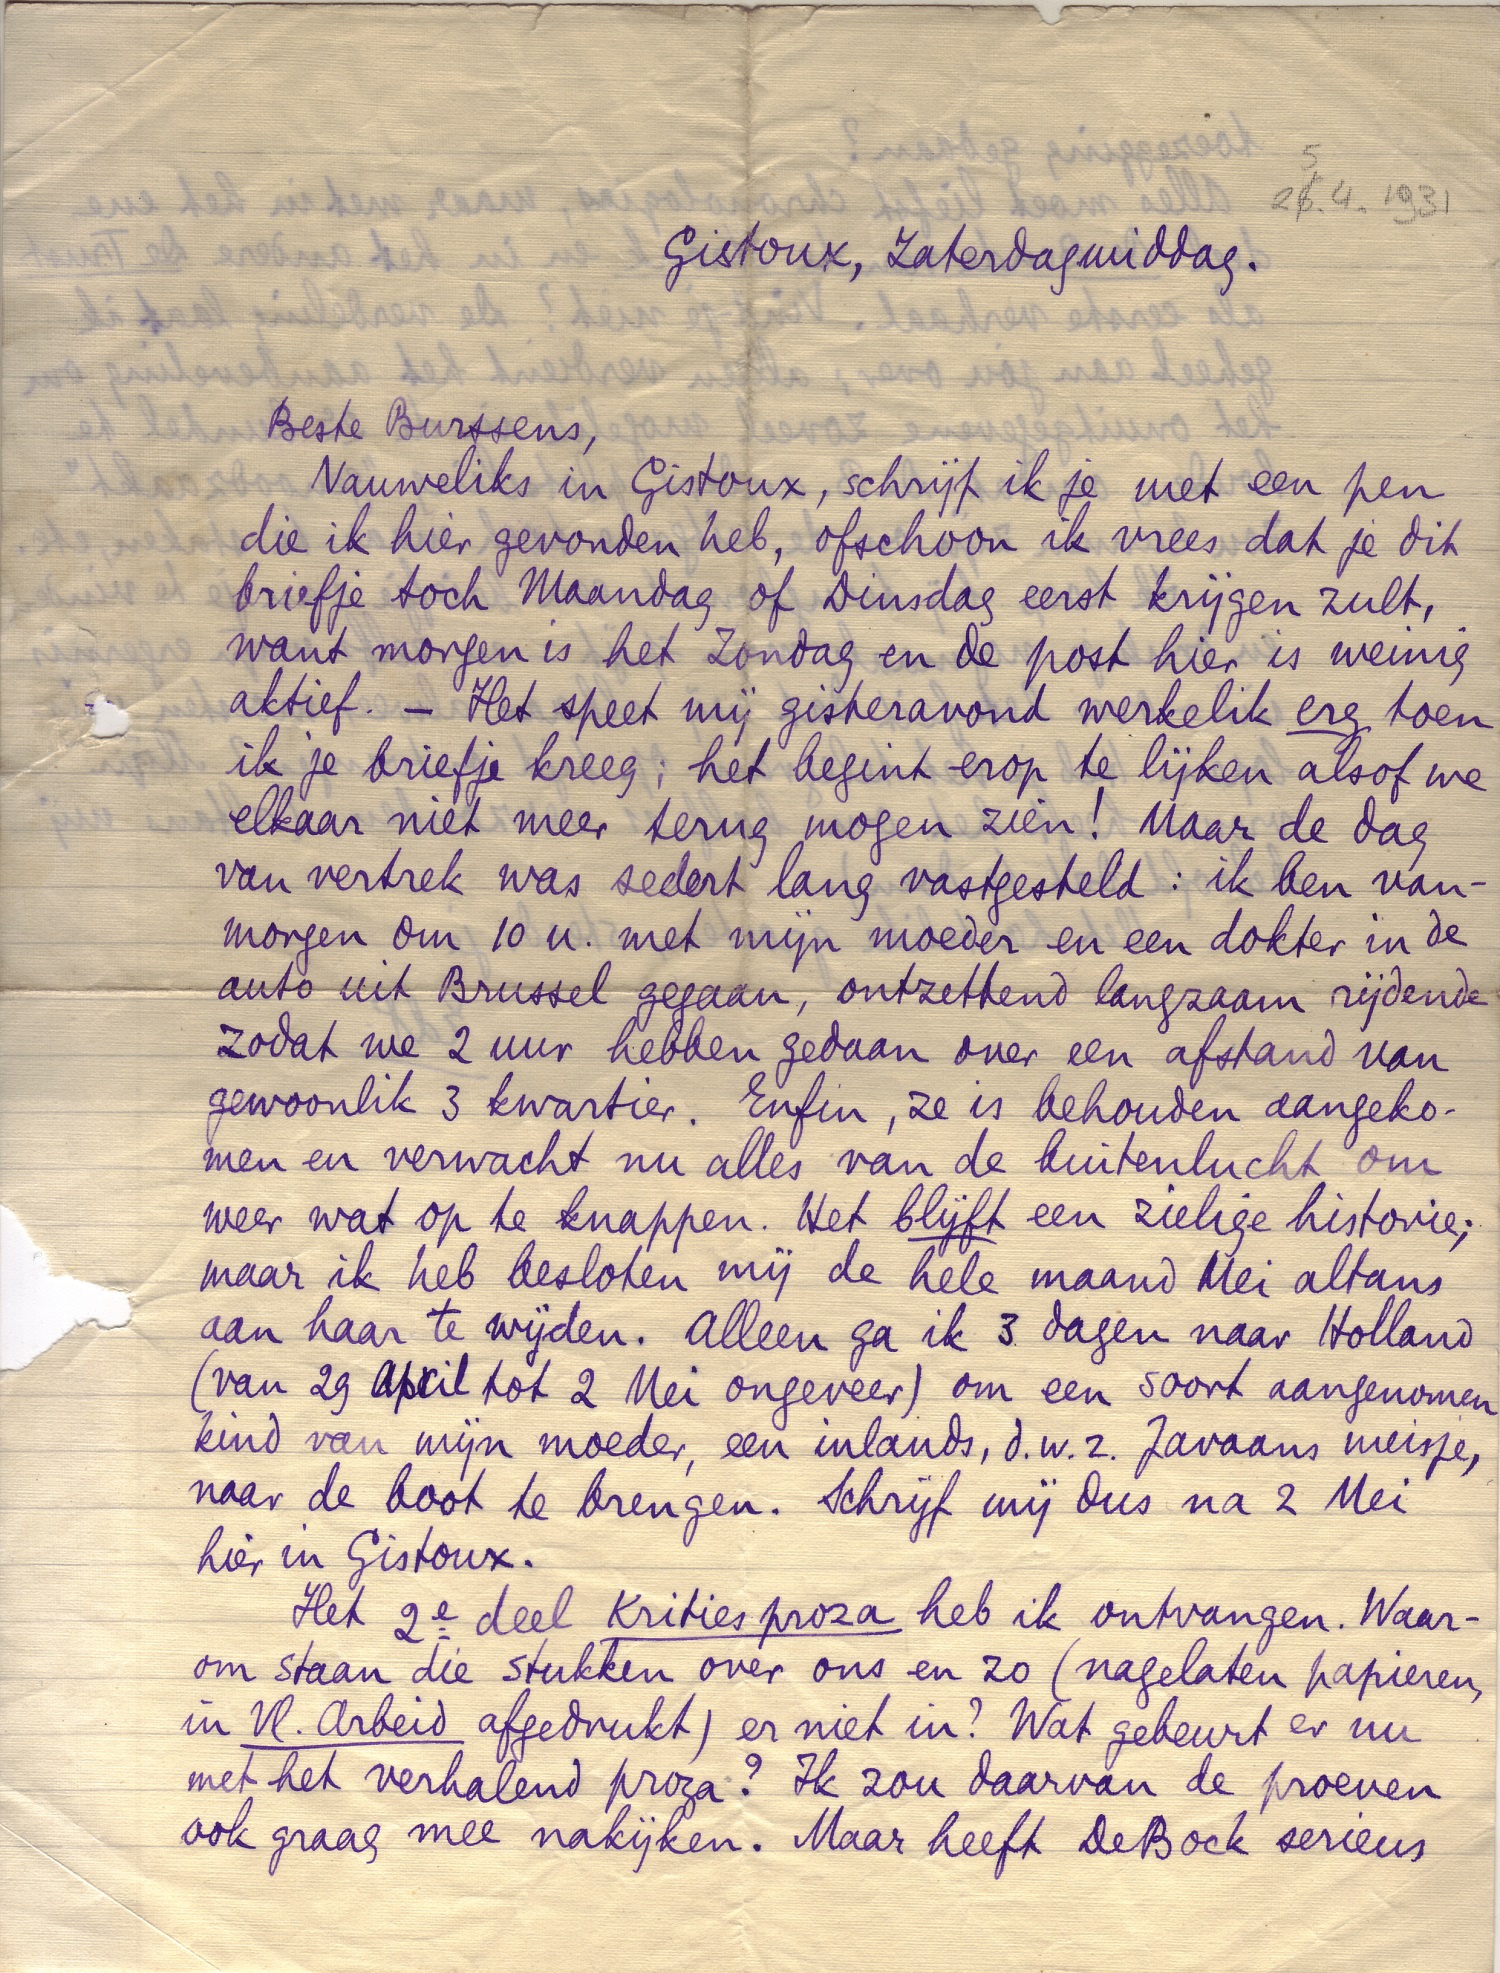 25.4.1931
Gistoux, Zaterdagmiddag.
Beste Burssens,
Nauweliks in Gistoux, schrijf ik je met een pen
die ik hier gevonden heb, ofschoon ik vrees dat je dit
briefje toch Maandag of Dinsdag eerst krijgen zult,
want morgen is het Zondag en de post hier is weinig
aktief. – Het speet mij gisteravond werkelik erg toen
ik je briefje kreeg; het begint erop te lijken alsof we
elkaar niet meer terug mogen zien! Maar de dag
van vertrek was sedert lang vastgesteld: ik ben van-
morgen om 10 u. met mijn moeder en een dokter in de
auto uit Brussel gegaan, ontzettend langzaam rijdende
zodat we 2 uur hebben gedaan over een afstand van
gewoonlik 3 kwartier. Enfin, ze is behouden aangeko-
men en verwacht nu alles van de buitenlucht om
weer wat op te knappen. Het blijft een zielige historie;
maar ik heb besloten mij de hele maand Mei altans
aan haar te wijden. Alleen ga ik 3 dagen naar Holland
(van 29 April tot 2 Mei ongeveer) om een soort aangenomen
kind van mijn moeder, een inlands, d.w.z. Javaans meisje,
naar de boot te brengen. Schrijf mij dus na 2 Mei
hier in Gistoux.
Het 2e deel Kritiesproza heb ik ontvangen. Waar-
om staan die stukken over ons en zo (nagelaten papieren,
in Vl. Arbeid afgedrukt) er niet in? Wat gebeurt er nu
met het verhalend proza? Ik zou daarvan de proeven
ook graag mee nakijken. Maar heeft De Bock serieus